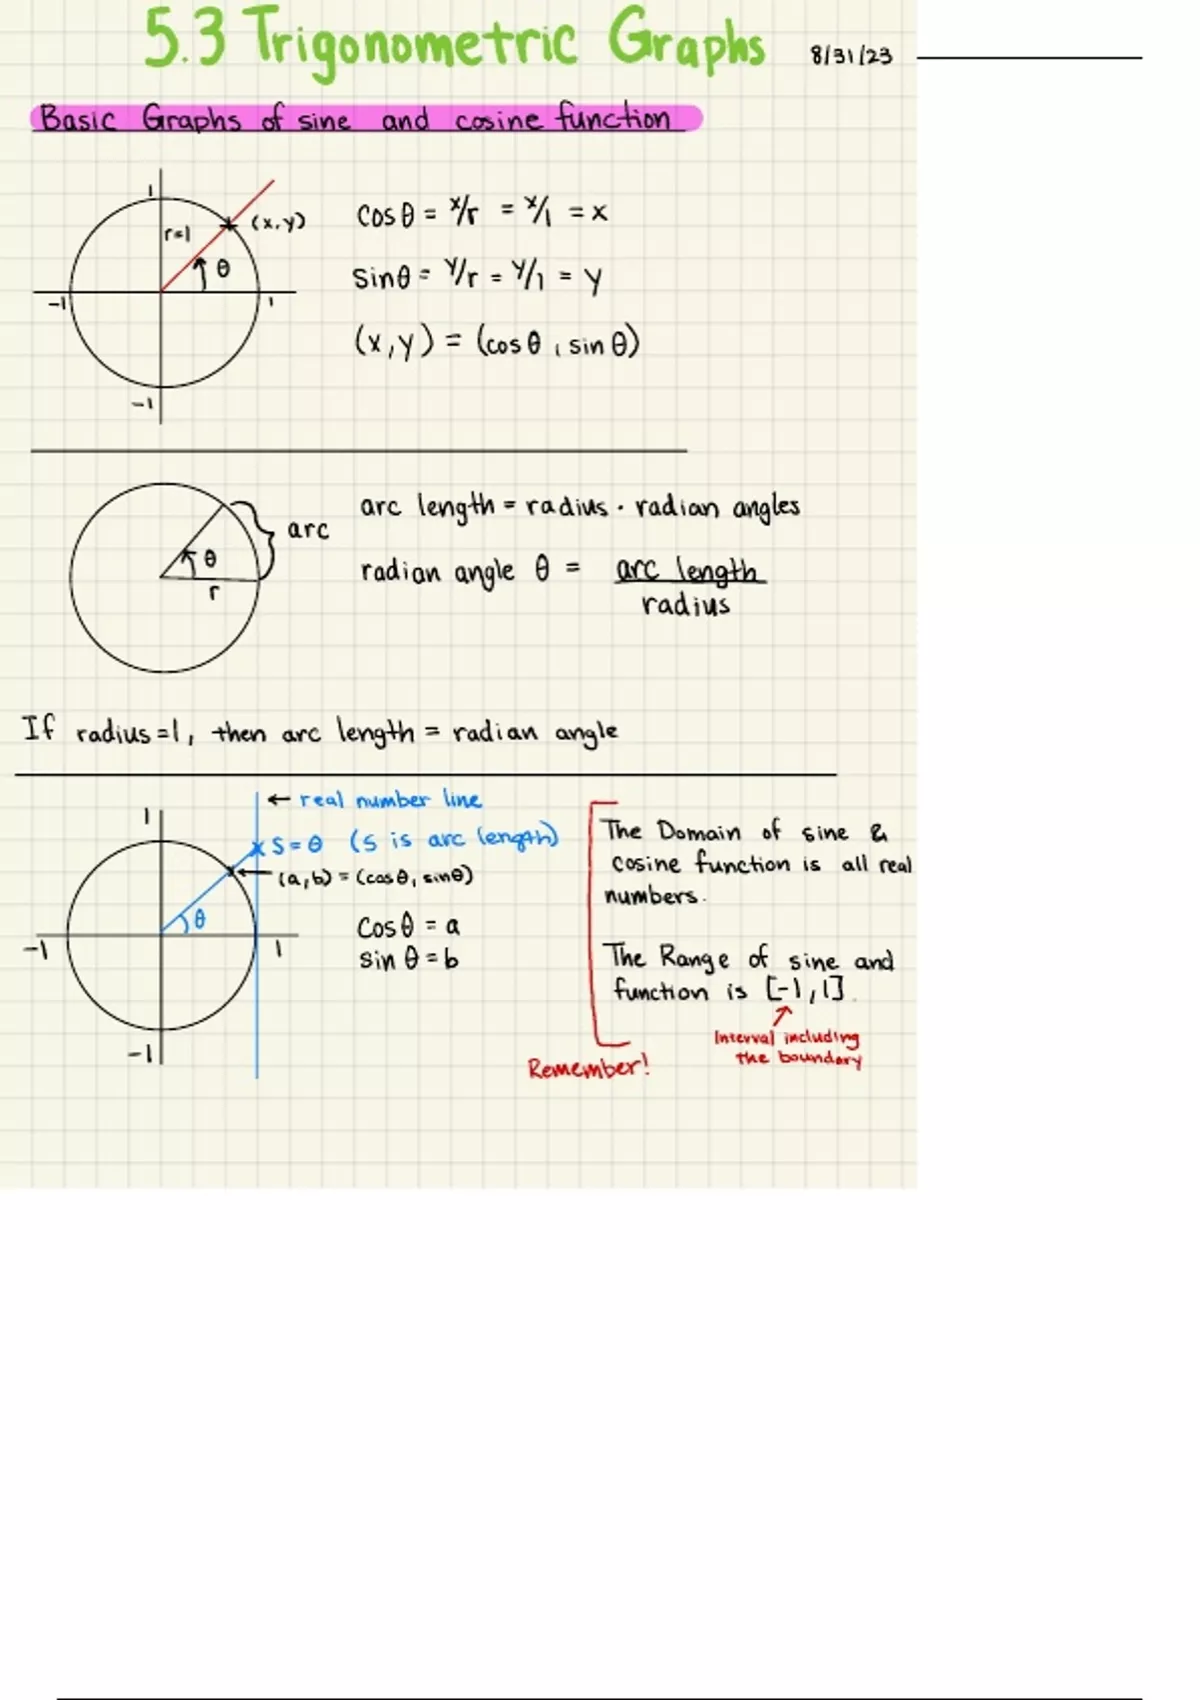 5.3 Trigonometric Graphs 8/31/23
Basic Graphs of sine and cosine function
1
r=1
(x,y)
θ
-1
1
-1
cosθ = x/r = x/1 = x
sinθ = y/r = y/1 = y
(x,y) = (cosθ, sinθ)
arc
θ
r
arc length = radius · radian angles
radian angle θ = arc length
radius
If radius=1, then arc length = radian angle
← real number line
1
S=θ (s is arc length)
(a,b) = (cosθ, sinθ)
θ
-1
1
-1
cosθ = a
sin θ = b
The Domain of sine &
cosine function is all real
numbers.
The Range of sine and
function is [-1,1].
Interval including
the boundary
Remember!